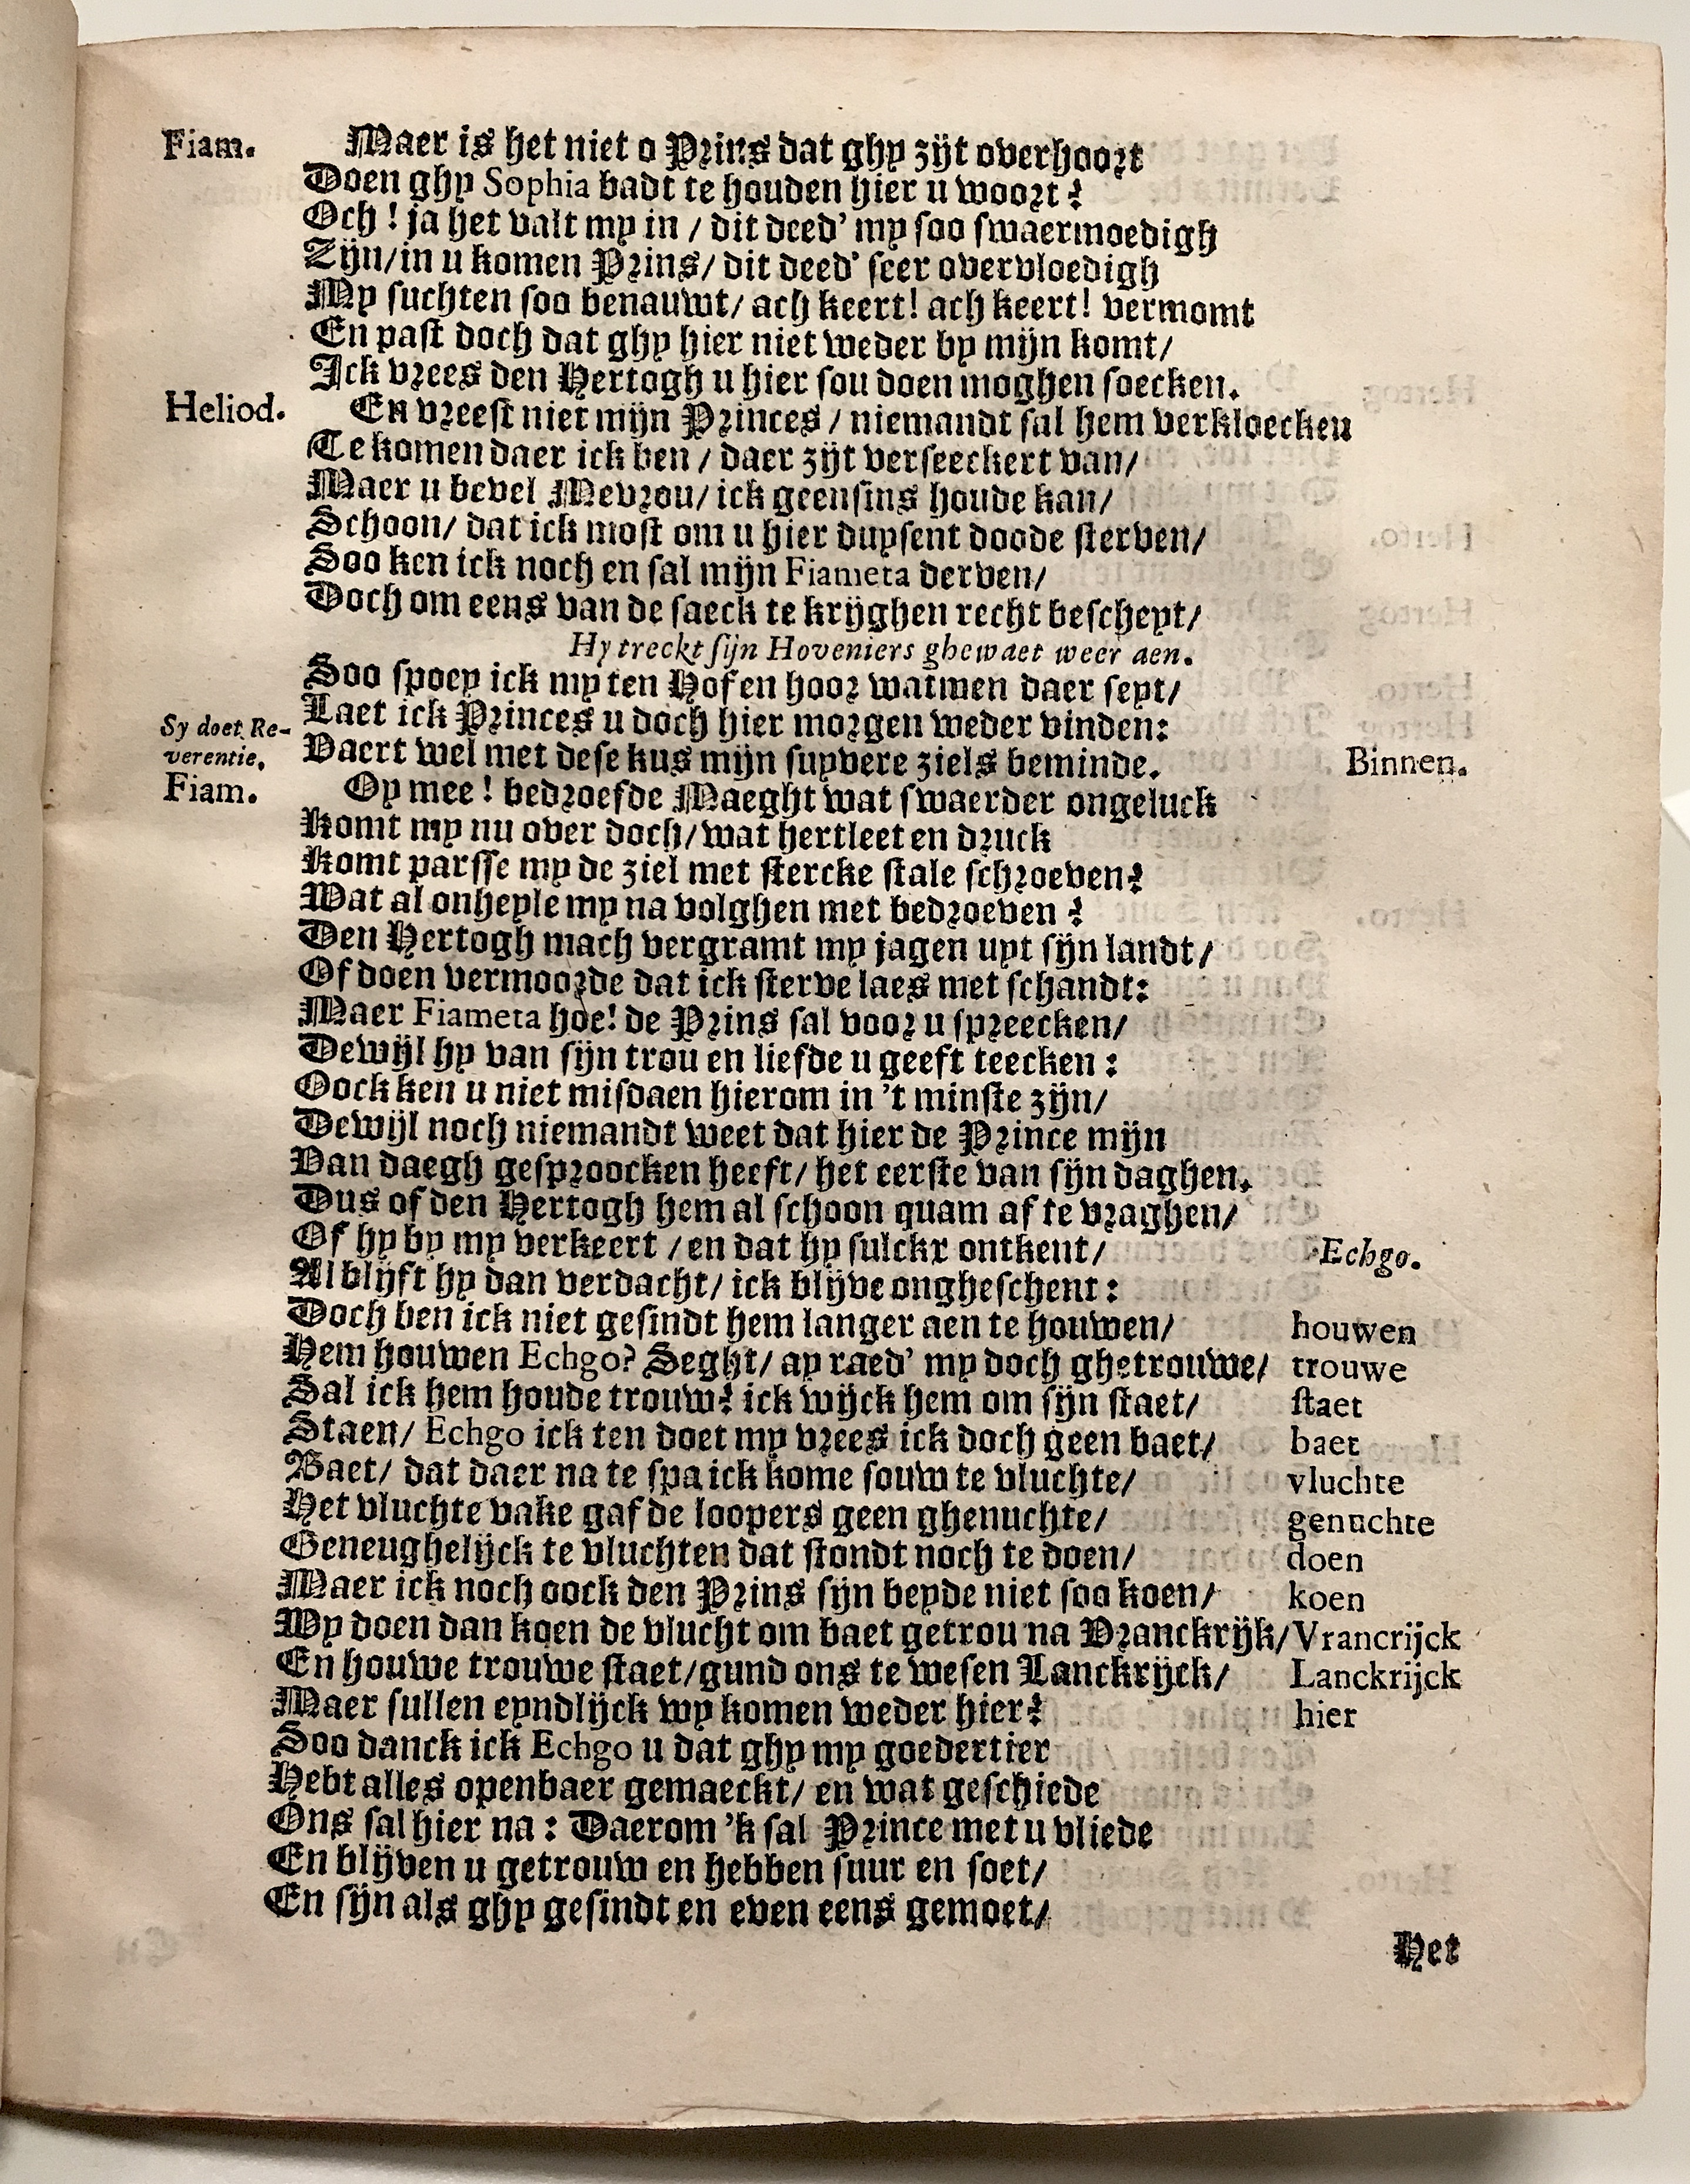 Fiam. Maer is het niet o Prins dat ghy zijt overhoort
Doen ghy Sophia badt te houden hier u woort?
Och! ja het valt my in / dit deed' my soo swaermoedigh
Zijn/in u komen Prins/ dit deed' seer overvloedigh
My suchten soo benauwt/ ach keert! ach keert! vermomt
En past doch dat ghy hier niet weder by mijn komt/
Ick vrees den Hertogh u hier sou doen moghen soecken.
Heliod. En vreest niet mijn Princes / niemandt sal hem verkloecken
Te komen daer ick ben / daer zijt verseeckert van/
Maer u bevel Mevrou/ ick geensins houde kan/
Schoon/ dat ick most om u hier duysent doode sterven/
Soo ken ick noch en sal mijn Fiameta derven/
Doch om eens van de saeck te krijghen recht bescheyt/
Hy treckt sijn Hoveniers ghewaet weer aen.
Soo spoey ick my ten Hof en hoor watmen daer seyt/
Laet ick Princes u doch hier morgen weder vinden:
Sy doet Re-
verentie. Vaert wel met dese kus mijn suyvere ziels beminde. Binnen.
Fiam. Oy mee! bedroefde Maeght wat swaerder ongeluck
Komt my nu over doch/ wat hertleet en druck
Komt parsse my de ziel met stercke stale schroeven?
Wat al onheyle my na volghen met bedroeven?
Den Hertogh mach vergramt my jagen uyt sijn landt/
Of doen vermoorde dat ick sterve laes met schandt:
Maer Fiameta hoe! de Prins sal voor u spreecken/
Dewijl hy van sijn trou en liefde u geeft teecken:
Oock ken u niet misdaen hierom in 't minste zijn/
Dewijl noch niemandt weet dat hier de Prince mijn
Van daegh gesproocken heeft/ het eerste van sijn daghen.
Dus of den Hertogh hem al schoon quam af te vraghen/
Of hy by my verkeert / en dat hy sulckx ontkent/ Echgo.
Al blijft hy dan verdacht/ ick blijve ongheschent:
Doch ben ick niet gesindt hem langer aen te houwen/ houwen
Hem houwen Echgo? Seght/ ay raed' my doch ghetrouwe/ trouwe
Sal ick hem houde trouw? ick wijck hem om sijn staet/ staet
Staen/ Echgo ick ten doet my vrees ick doch geen baet/ baet
Baet/ dat daer na te spa ick kome souw te vluchte/ vluchte
Het vluchte vake gaf de loopers geen ghenuchte/ genuchte
Geneughelijck te vluchten dat stondt noch te doen/ doen
Maer ick noch oock den Prins sijn beyde niet soo koen/ koen
Wy doen dan koen de vlucht om baet getrou na Vranckrijk/ Vrancrijck
En houwe trouwe staet/gund ons te wesen Lanckrijck/ Lanckrijck
Maer sullen eyndlijck wy komen weder hier? hier
Soo danck ick Echgo u dat ghy my goedertier
Hebt alles openbaer gemaeckt/ en wat geschiede
Ons sal hier na: Daerom 'k sal Prince met u vliede
En blijven u getrouw en hebben suur en soet/
En sijn als ghy gesindt en even eens gemoet/
Het